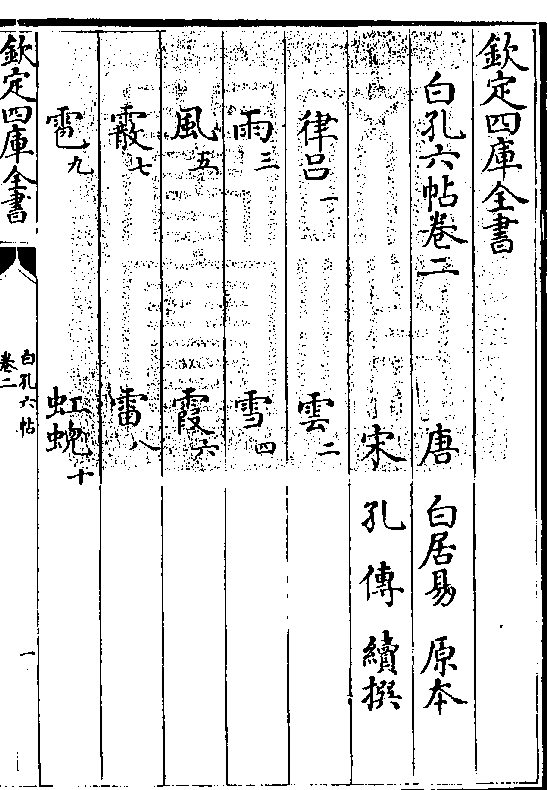 欽定四庫全書
白孔六帖卷二 唐 白居易 原本
宋 孔傳 續撰
律呂一 雲二
雨三 雪四
風五 霞六
霰七 雷八
雹九 虹蜺十
欽定四庫全書 白孔六帖 卷二 一